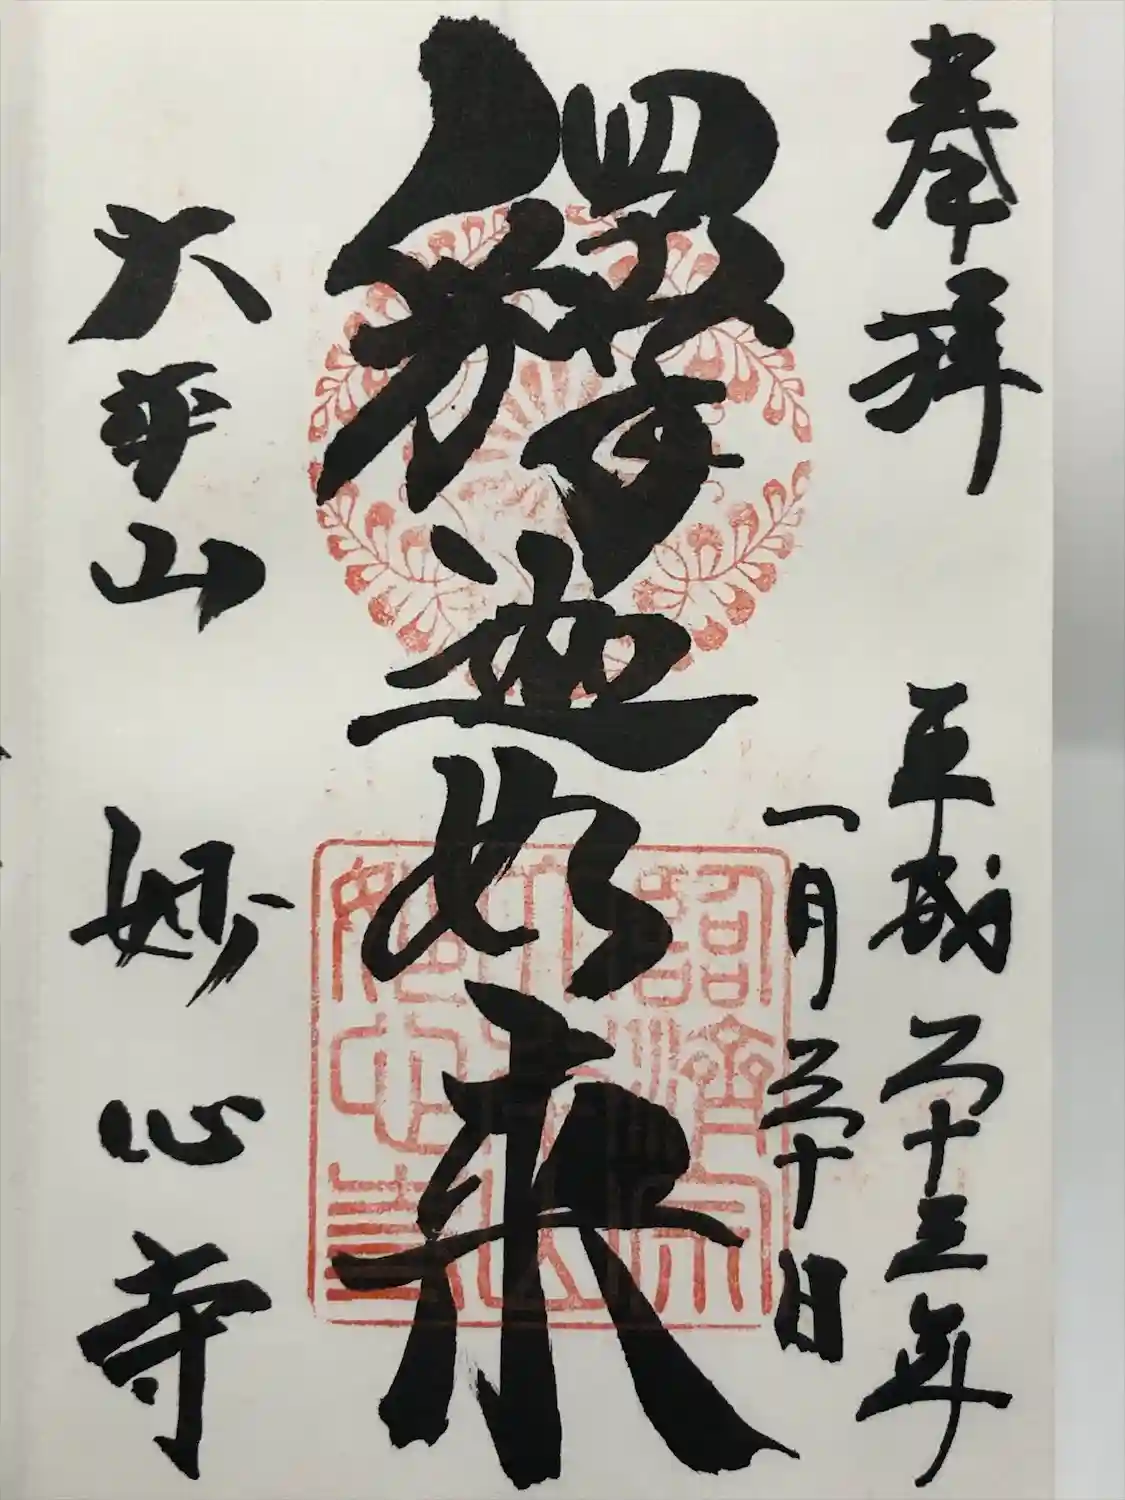 奉拝
平成二十三年
一月三十日
釋迦如来
大山 妙心寺